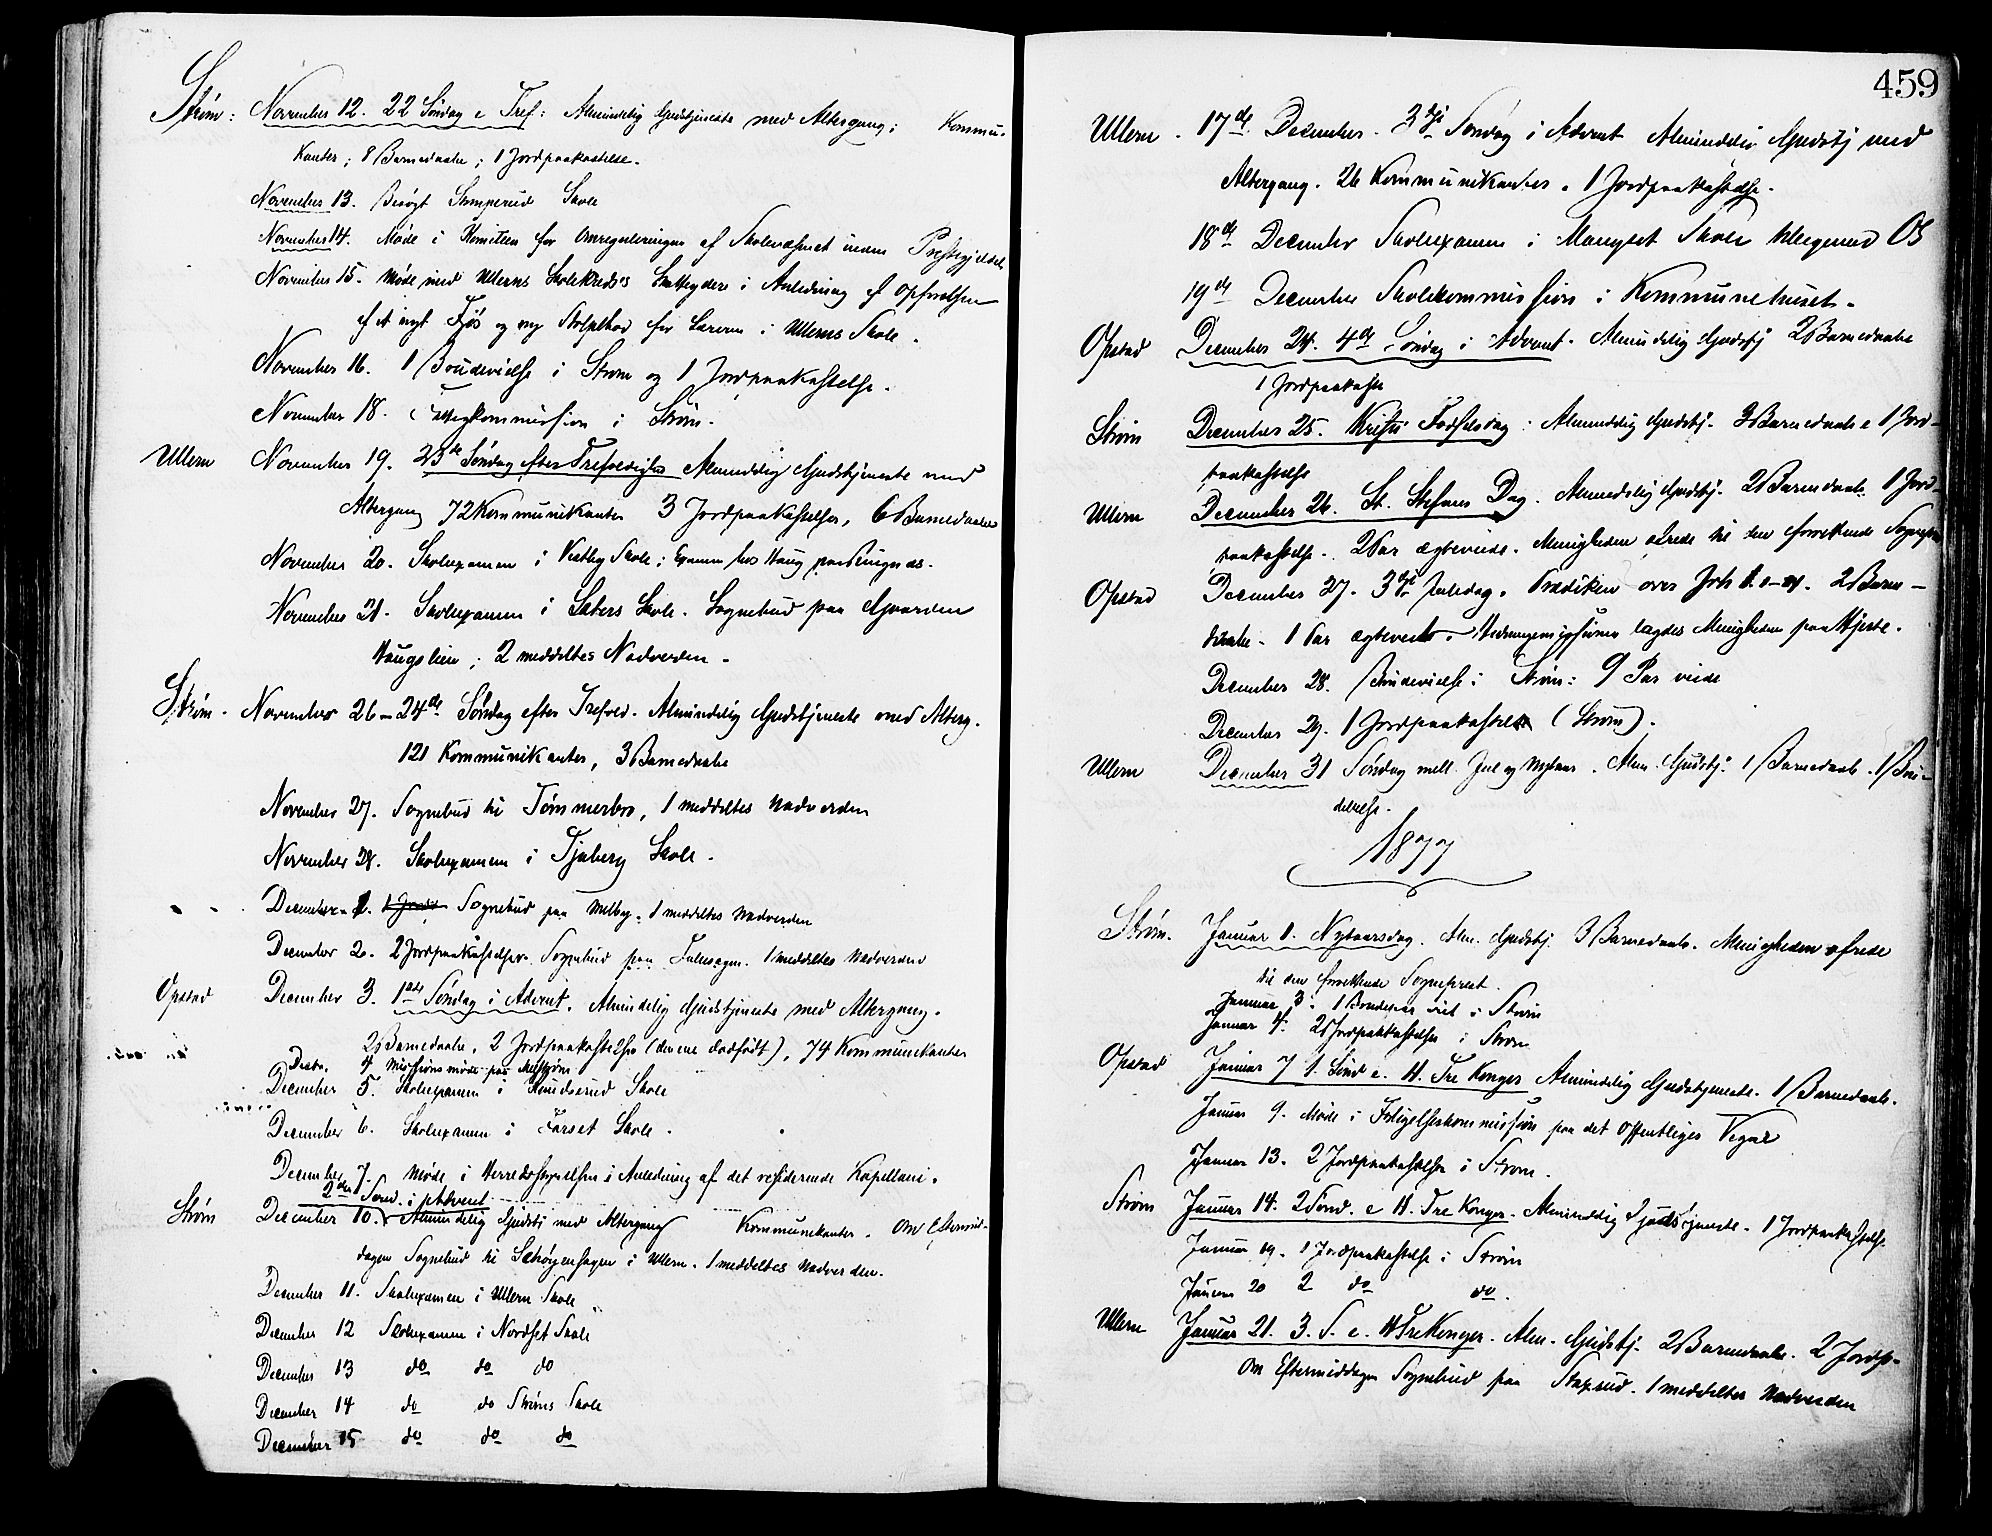 Strøm: November 12. 22 Søndag e Tref: Almindelig Gudstjeneste med Altergang; Kommu-
kanter; 8 Barnedaabe; 1 Jordpaakastelse.
November 13. Besøgt Skole
November 14. Møde i Komiteen for Omreguleringen af Skolevæsenet inden Præstegjeldet
November 15. Møde med Ullerns Skolekreds's Skatteydere i Anledning af Opførelsen
af et nyt Fjøs og ny for Læreren i Ullerns Skole.
November 16. 1 Brudevielse i Strøm og 1 Jordpaakastelse.
November 18. Fattigkommission i Strøm.
Ullern November 19. 23de Søndag efter Trefoldighed Almindelig Gudstjeneste med
Altergang 72 Kommunikanter 3 Jordpaakastelser, 6 Barnedaabe
November 20. Skolexamen i Vestby Skole; Examen hos Haug paa
November 21. Skolexamen i Sæters Skole. Sognebud paa Gaarden
Haugslien; 2 meddeltes Nadverden.
Strøm. November 26 - 24de Søndag efter Trefold. Almindelig Gudstjeneste med Alterg.
121 Kommunikanter, 3 Barnedaabe
November 27. Sognebud til Tømmerbro, 1 meddeltes Nadverden
November 28. Skolexamen i Tjaberg Skole.
December 1. 1 Jord Sognebud paa Melby. 1 meddeltes Nadverden
December 2. 2 Jordpaakastelser. Sognebud paa 1 meddeltes Nadverden
Opstad December 3. 1ste Søndag i Advent. Almindelig Gudstjeneste med Altergang.
2 Barnedaabe, 2 Jordpaakastelser (den ene dødfødt), 74 Kommunikanter
Decbr. 4 Missionsmøde paa
December 5. Skolexamen i Knudserud Skole
December 6. Skolexamen i Farset Skole.
December 7. Møde i Herredsstyrelsen i Anledning af det residerende Kapellani.
2den Sønd. i Advent
Strøm December 10. Almindelig Gudstj med Altergang Kommunikanter. Om Eftermid-
dagen Sognebud til i Ullern. 1 meddeltes Nadverden.
December 11. Skolexamen i Ullern Skole
December 12 Skolexamen i Nordset Skole
December 13 do do do
December 14 do do Strøms Skole
December 15 do do do
459
Ullern. 17de December. 3die Søndag i Advent Almindelig Gudstj med
Altergang. 26 Kommunikanter. 1 Jordpaakastelse.
18de December Skolexamen i Mangset Skole
19de December Skolekommission i Kommunehuset.
Opstad December 24. 4de Søndag i Advent. Almindelig Gudstj 2 Barnedaabe
1 Jordpaakaste
Strøm December 25. Kristi Fødselsdag: Almindelig Gudstj. 3 Barnedaabe 1 Jord-
paakastelse
Ullern December 26. St. Stefans Dag. Almindelig Gudstj. 2 Barnedaabe. 1 Jord-
paakastelse. 2 Par ægteviede. Menigheden ofrede til den forrettende Sognepr
Opstad December 27. 3die Juledag. Prædiken over Joh 1. 2 Barne-
daabe. 1 Par ægteviet. lagdes Menigheden paa Hjerte.
December 28. Brudevielse i Strøm: 9 Par viede
December 29. 1 Jordpaakastelse (Strøm).
Ullern December 31 Søndag mell. Jul og Nytaar. Alm. Gudstj. 1 Barnedaab. 1 Bru-
devielse.
1877
Strøm. Januar 1. Nytaarsdag. Alm. Gudstj. 3 Barnedaab. Menigheden ofrede
til den forrettende Sogneprest.
Januar 3. 1 Brudepar viet i Strøm
Januar 4. 2 Jordpaakastelser i Strøm
Opstad Januar 7 1. Sønd e. H. Tre Konger Almindelig Gudstjeneste. 1 Barnedaab.
Januar 9. Møde i Forligelseskommission paa det Offentliges Vegne
Januar 13. 2 Jordpaakastelse i Strøm.
Strøm Januar 14. 2 Sønd. e H. Tre Konger. Almindelig Gudstjeneste. 1 Jordpaakastelse
Januar 19. 1 Jordpaakastelse i Strøm
Januar 20 2 do do.
Ullern Januar 21. 3. S. e. H Tre Konger. Alm. Gudstj. 2 Barnedaabe. 2 Jordp-
Om Eftermiddagen Sognebud paa Skaprud. 1 meddeltes Nadverden